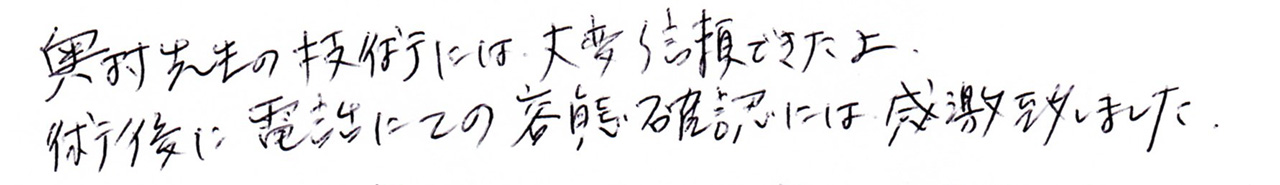 奥村先生の技術には大変信頼できた上、
術後に電話にての容態確認には感激致しました.